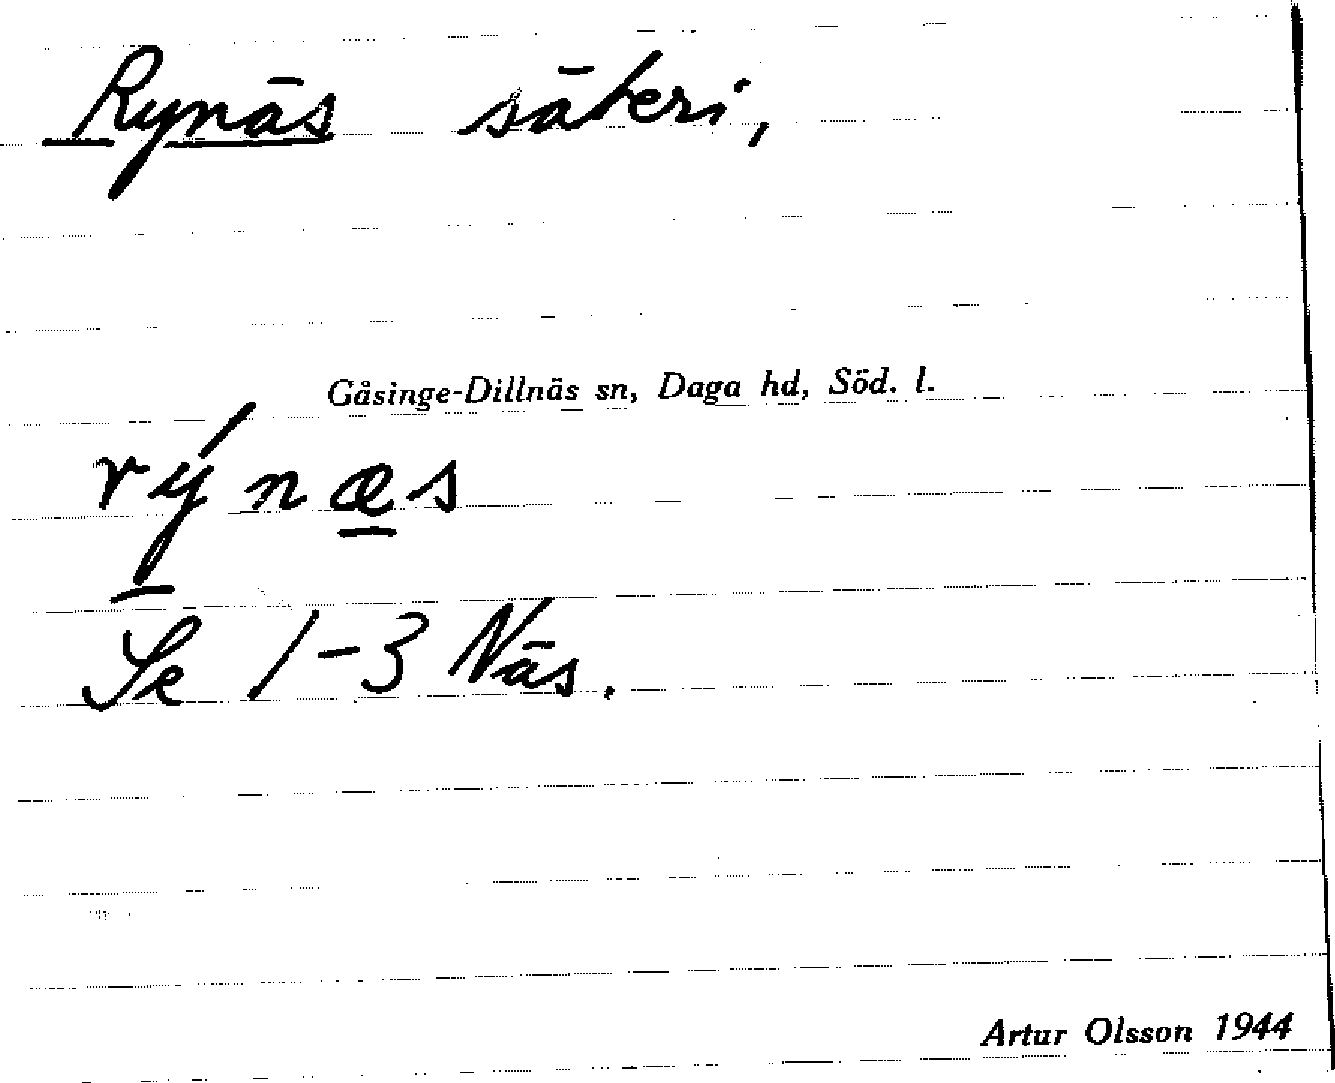 Rynäs säteri,
Gåsinge-Dillnäs sn, Daga hd, Söd. l.
rýnæs
Se 1-3 Näs.
Artur Olsson 1944